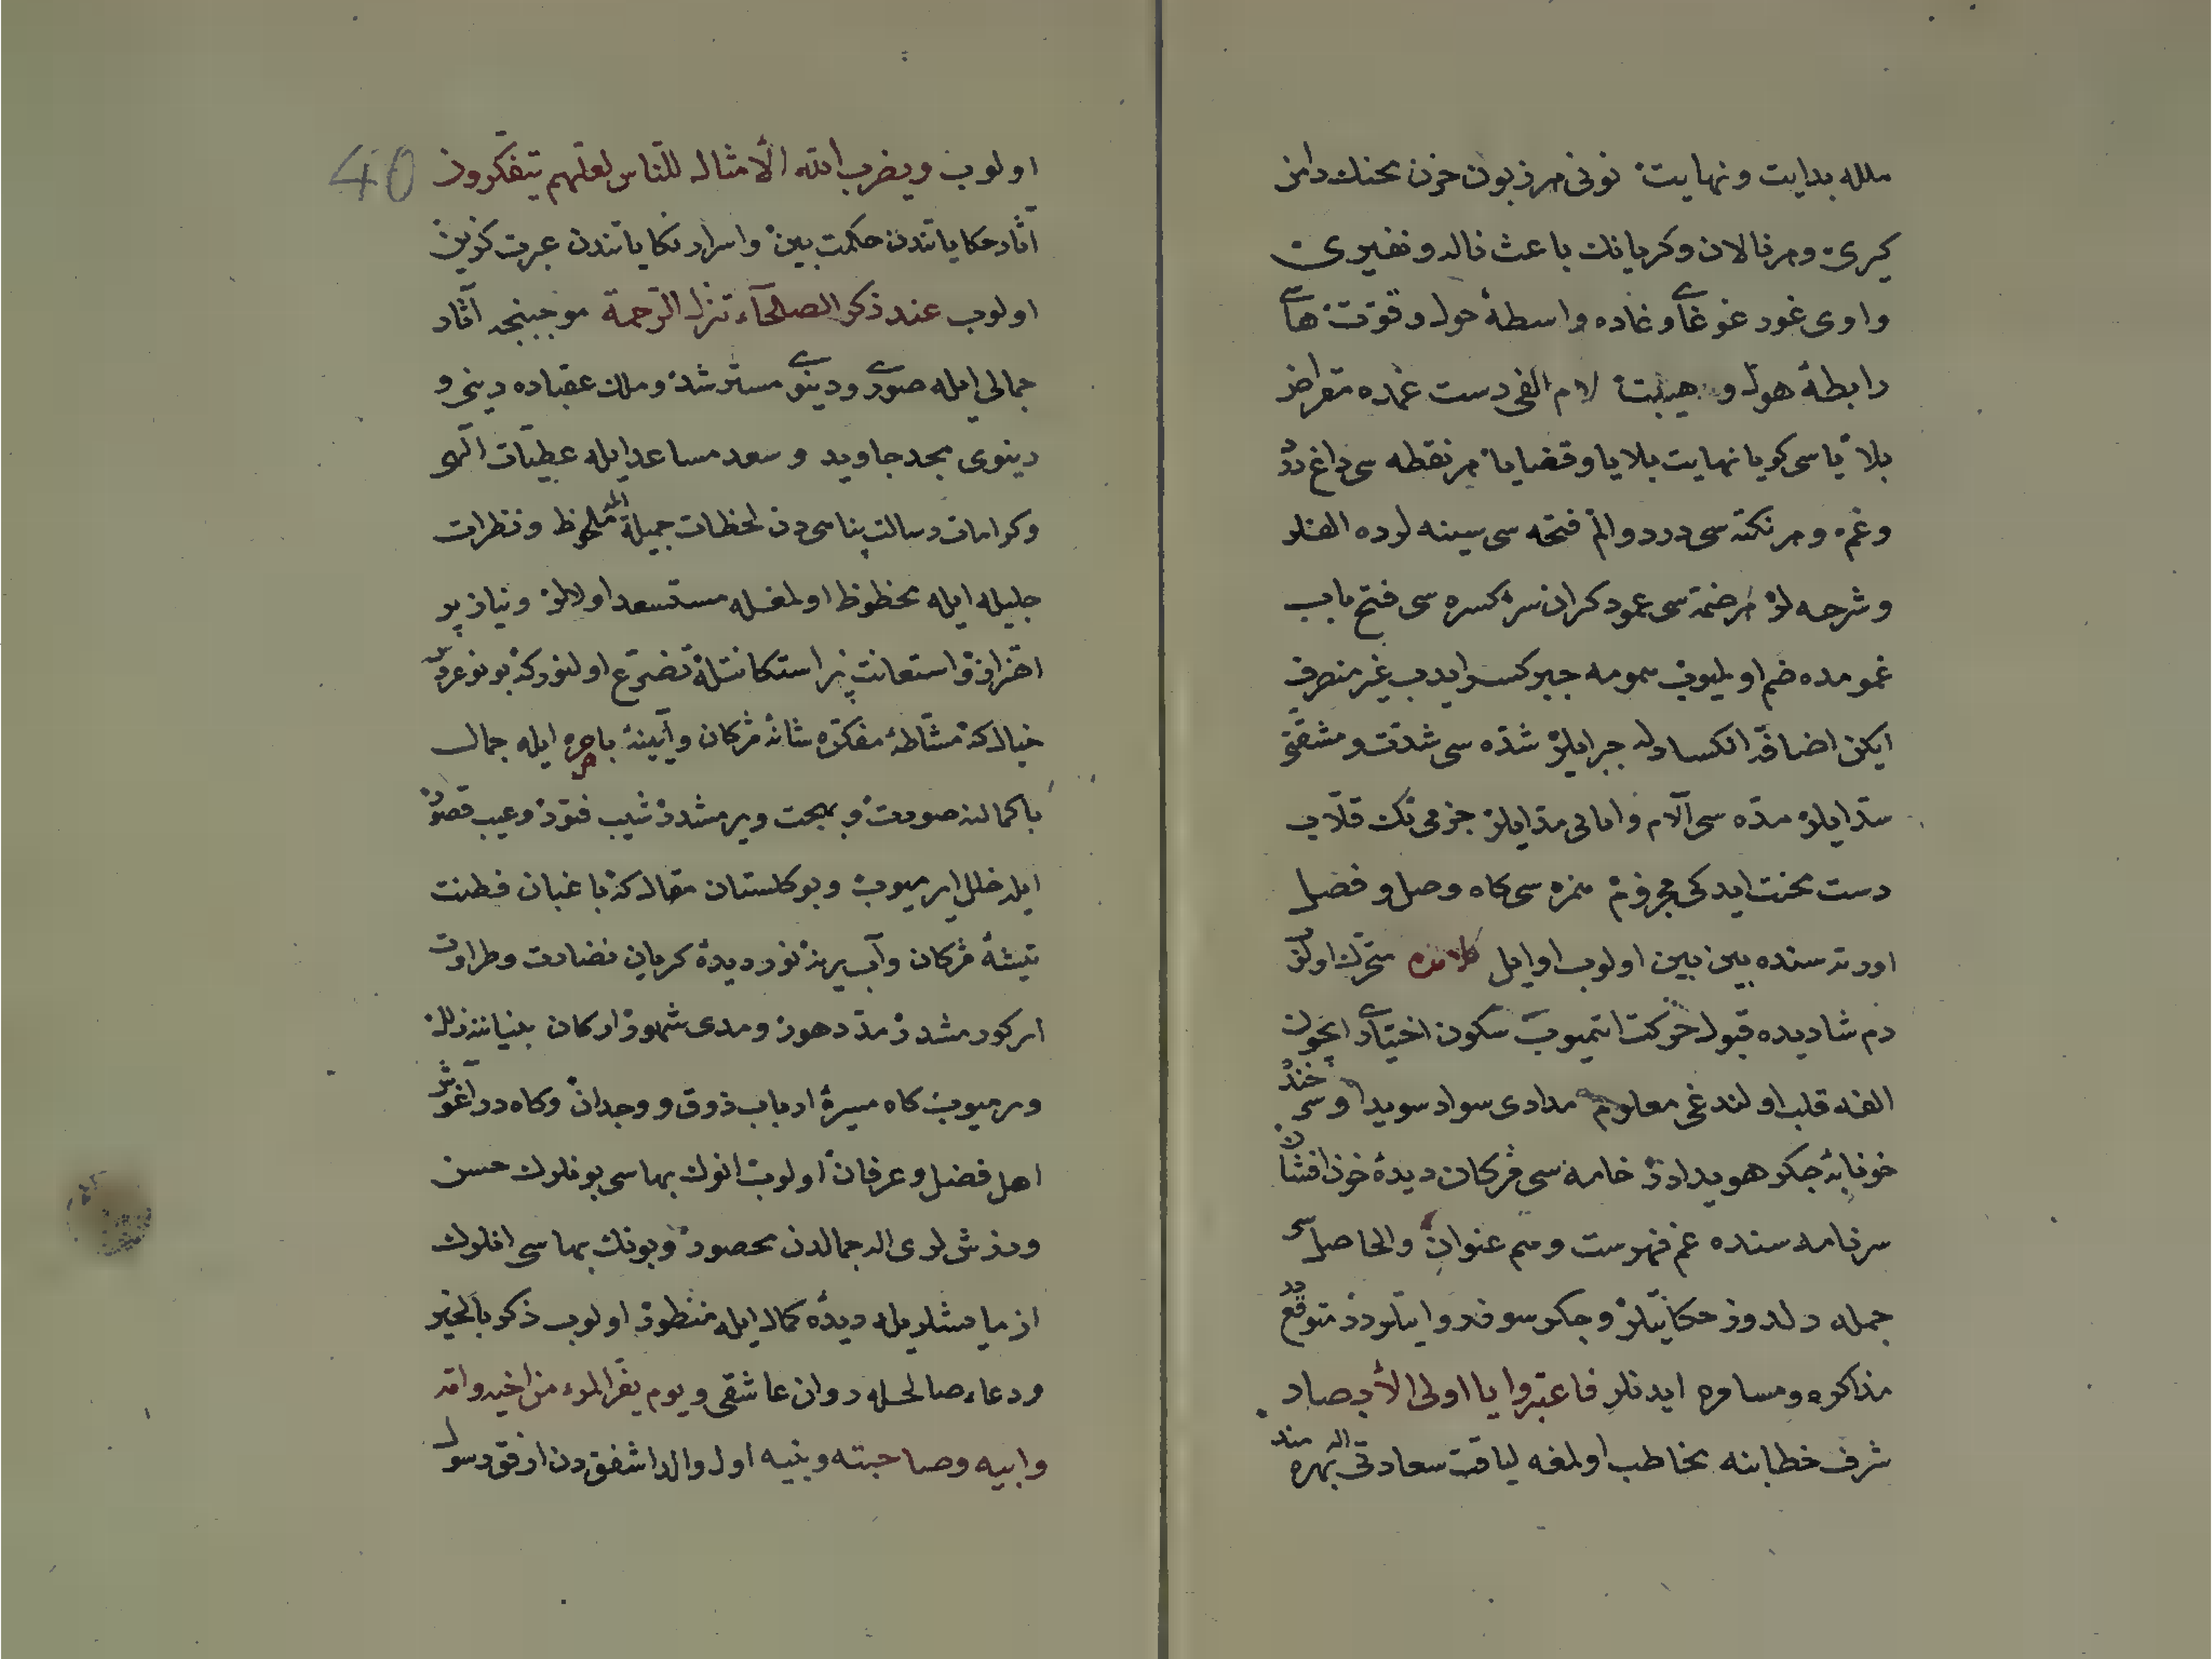 ملله بدایت و نهایت نونی هر زبون حزن محنتك دامن
کیری و هر نالان و کریانك باعث ناله و نفیری
واوی غور غوغای و غاده واسطهٔ حول و قوت های
رابطهٔ هول و هیبت لام الفی دست غمده مقراض
بلا یاسی کویا نهایت بلایا و قضایا هر نقطه سی داغ درد
و غم و هر نکته سی درد و الم فتحه سی سینه لرده الفلر
و شرحه لر هر ضمه سی عمود کران سر کسره سی فتح باب
غمومده ضم اولمیوب همومه جبر کسر ایدب غیر منصرف
ایکن اضافه انکسار له جر ایلر شده سی شدت و مشقتی
شد ایلر مده سی آلام و امانی مد ایلر جزمی تك قلاب
دست محنت ایدکی مجزوم همزه سی کاه وصل و فصل
اورته سنده بین بین اولوب اوایل کلامده متحرك اولن
دم شادیده قبول حرکت ایتمیوب سکون اختیار ایچون
الفه قلب اولندغی معلوم مدادی سواد سویدا و سرخی
خونابهٔ جکر هویدادر خامه سی مژکان دیدهٔ خون افشان
سرنامه سنده غم فهرست و هم عنوان والحاصل
جمله دلدوز حکایتلر و جکر سوز روایتلردر متوقع
مذاکره و مسامره ایدنلر فاعتبروا یا اولی الأبصار
شرف خطابنه مخاطب اولمغه لیاقت سعادتی ایله بهره مند
40
اولوب ویضرب الله الأمثال للناس لعلهم یتفکرون
آثار حکایاتندن حکمت بین و اسرار نکایاتندن عبرت کزین
اولوب عند ذکر الصلحآء تنزل الرحمة موجبنجه آثار
جمالی ایله صوری و دینوی مسترشد و ملك عقباده دینی و
دینوی مجد جاوید و سعد مساعد ایله عطیات الهی
و کرامات رسالت پناهی دن لحظات جمیله ایله ملحوظ و نظرات
جلیله ایله محظوظ اولمغله مستسعد اولالر و نیاز پر
اهتزاز و استعانت پر استکانتله تضرع اولنور که بو نو عروس
خیال که مشاطهٔ مفکره شانهٔ مژکان و آیینهٔ باصره ایله جمال
باکمالنه صورت و بهجت ویرمشدر شیب فتور و عیب قصور
ایله خلل ایرمیوب و بو کلستان مقال که باغبان فطنت
تیشهٔ مژکان و آب یرینه نور دیدهٔ کریان نضارت و طراوت
ایرکورمشدر مد دهور و مدی شهور ارکان بنیاننه زلل
ویرمیوب کاه مسیرهٔ ارباب ذوق و وجدان و کاه در آغوش
اهل فضل و عرفان اولوب انوك بهاسی بونلرك حسن
ورزش لری اله جمالدن محصور و بونك بهاسی انلرك
ازمایشلریله دیدهٔ کمال ایله منظور اولوب ذکر بالخیر
ودعاء صالحله دوان عاشقی و یوم یفر المرء من اخیه وامه
وابیه وصاحبته وبنیه اول والد اشفق دن ارفق رسول